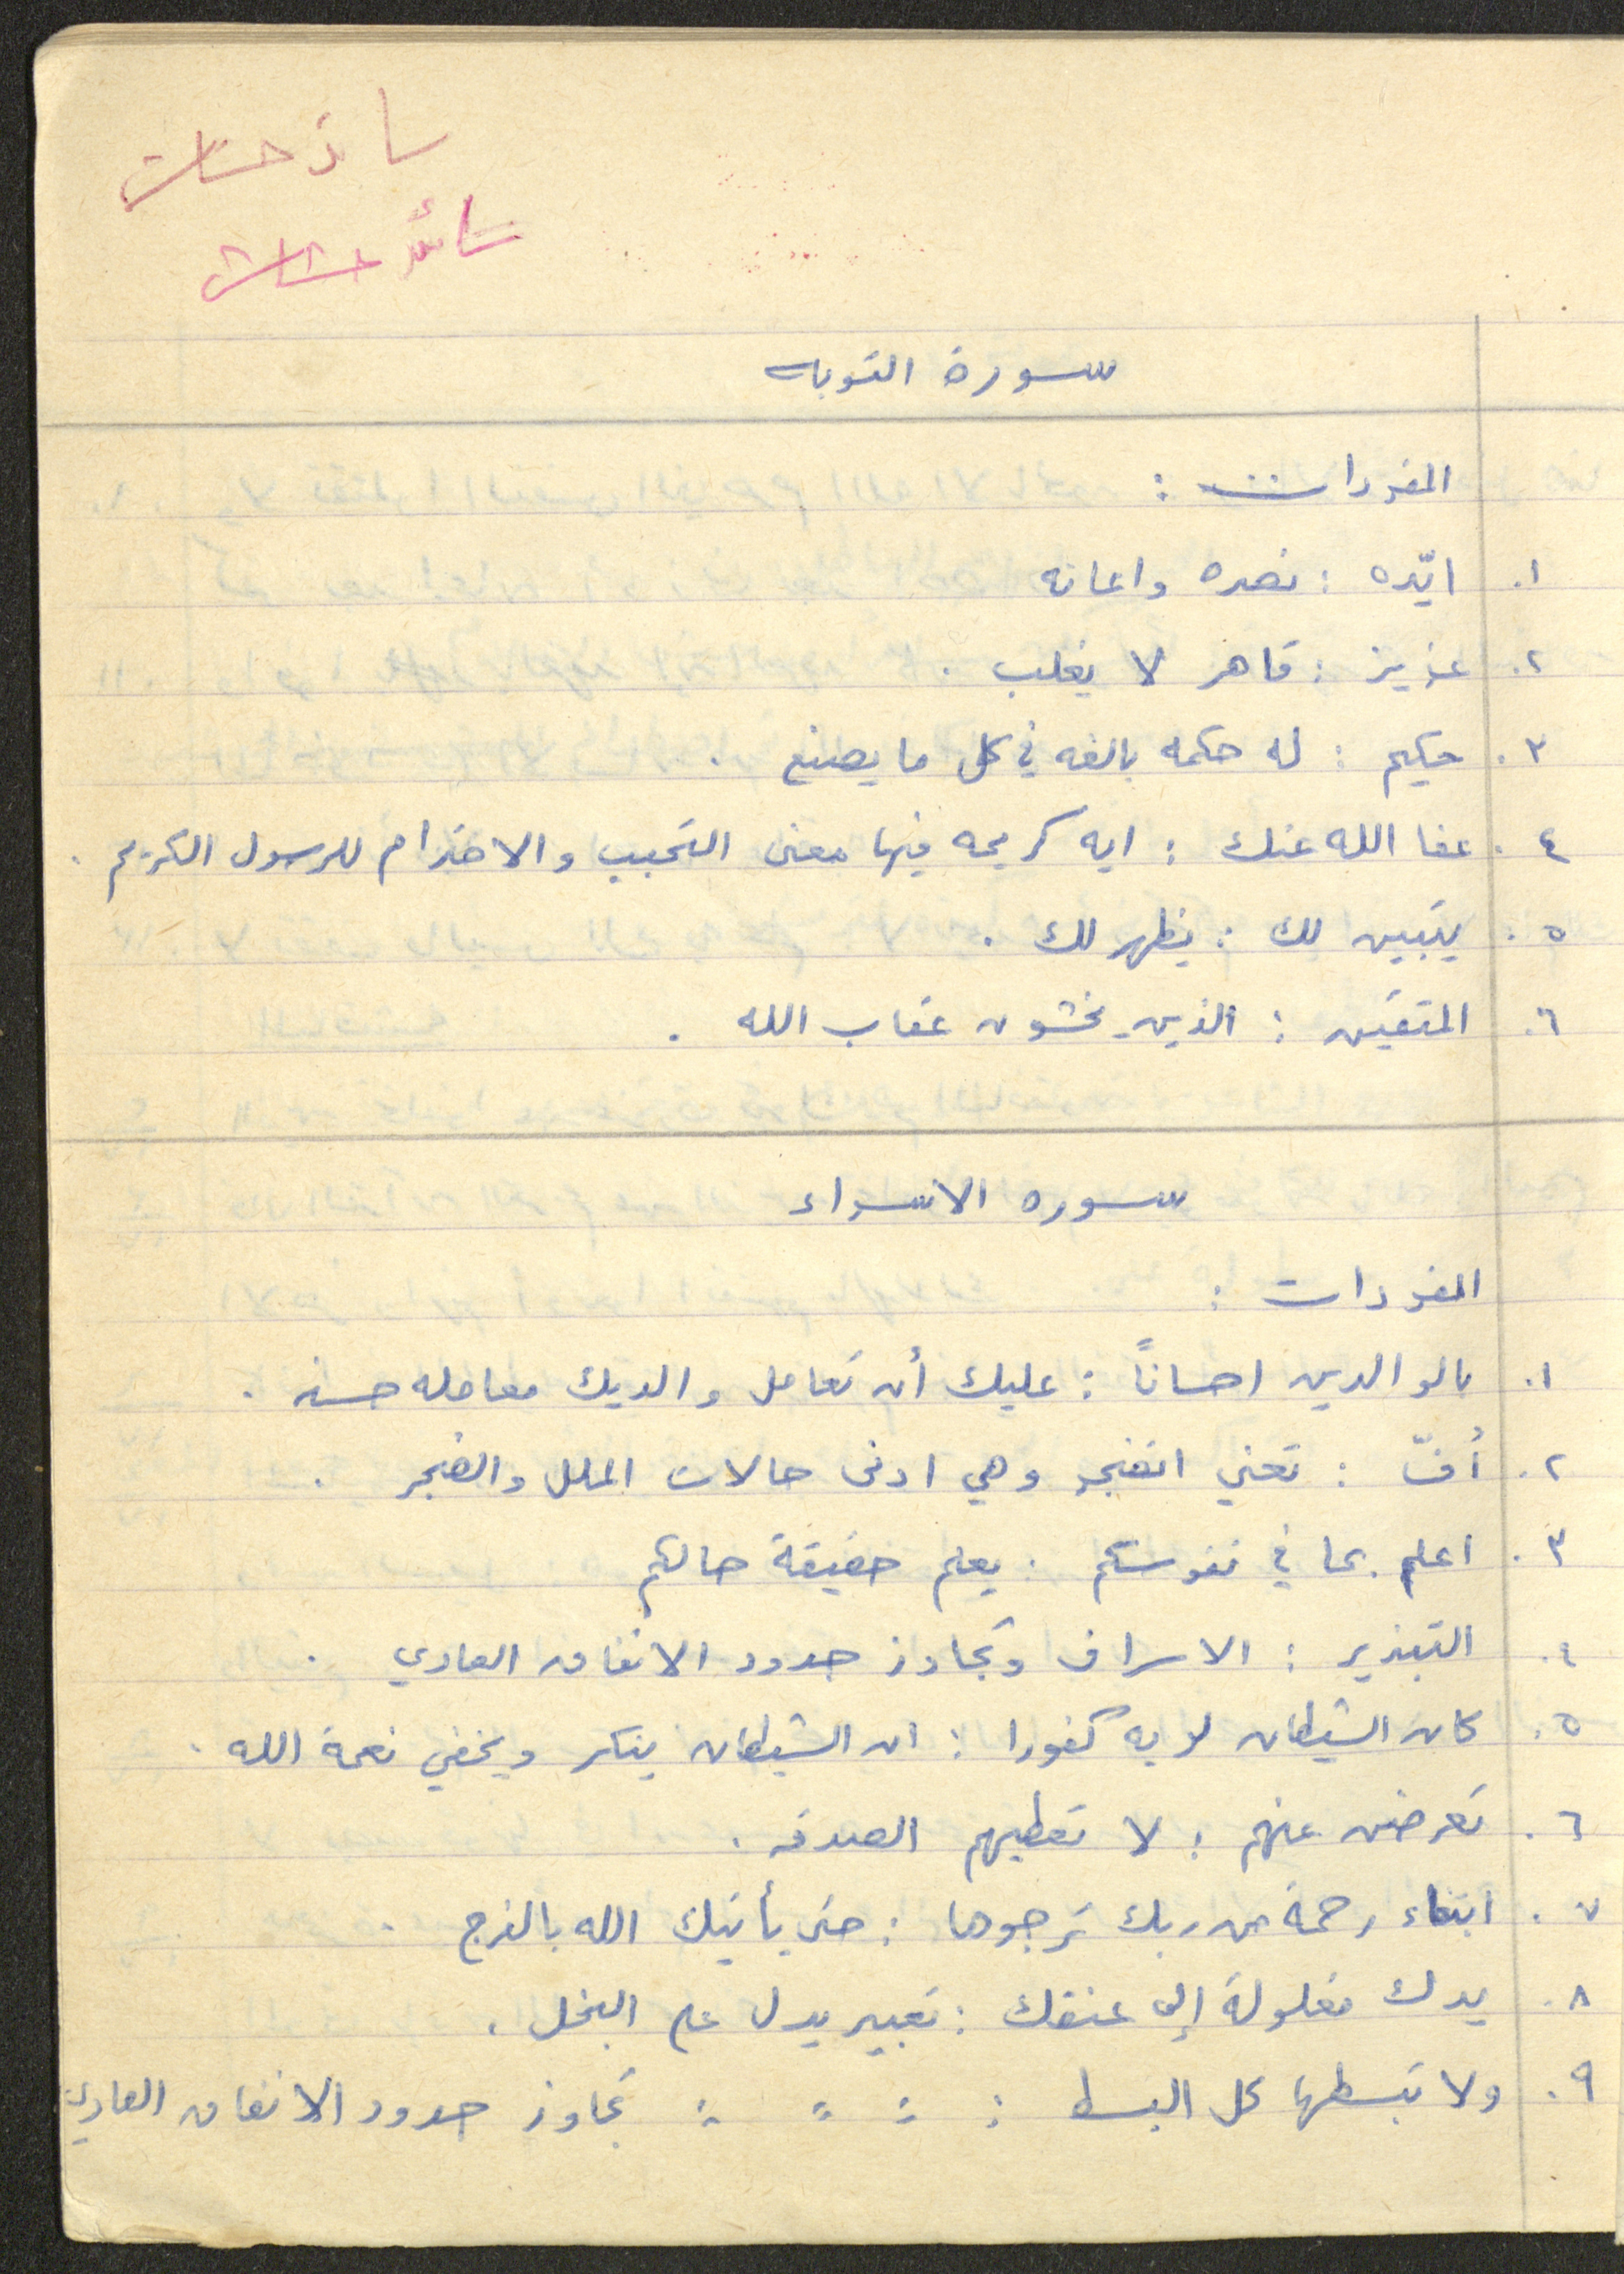 سائد حشاش
سورة التوبه
المفردات :
١. ايّده : نصره واعانه
٢. عزيز : قاهر لا يغلب .
٣. حكيم : له حكمه بالغه في كل ما يصنع .
٤. عفا الله عنك : ايه كريمه فيها معنى التحبب والاحترام للرسول الكريم .
٥. يتبين لك : يظهر لك .
٦. المتقين : الذين يخشون عقاب الله .
سوره الاسراء
المفردات :
١. بالوالدين احساناً : عليك أن تعامل والديك معامله حسنه .
٢. أُفّ : تعني اتضجر وهي ادنى حالات الملل والضجر .
٣. اعلم بما في نفوسكم . يعلم حقيقة حالكم
٤. التبذير : الاسراف وتجاوز حدود الانفاق العادي .
٥. كان الشيطان لربه كفورا : ان الشيطان ينكر ويخفي نعمة الله .
٦. تعرضن عنهم : لا تعطيهم الصدقه .
٧. ابتغاء رحمة من ربك ترجوها : حتى يأتيك الله بالفرج .
٨. يدك مغلولة إلى عنقك : تعبير يدل على البخل .
٩. ولا تبسطها كل البسط : = = = تجاوز حدود الانفاق العادي